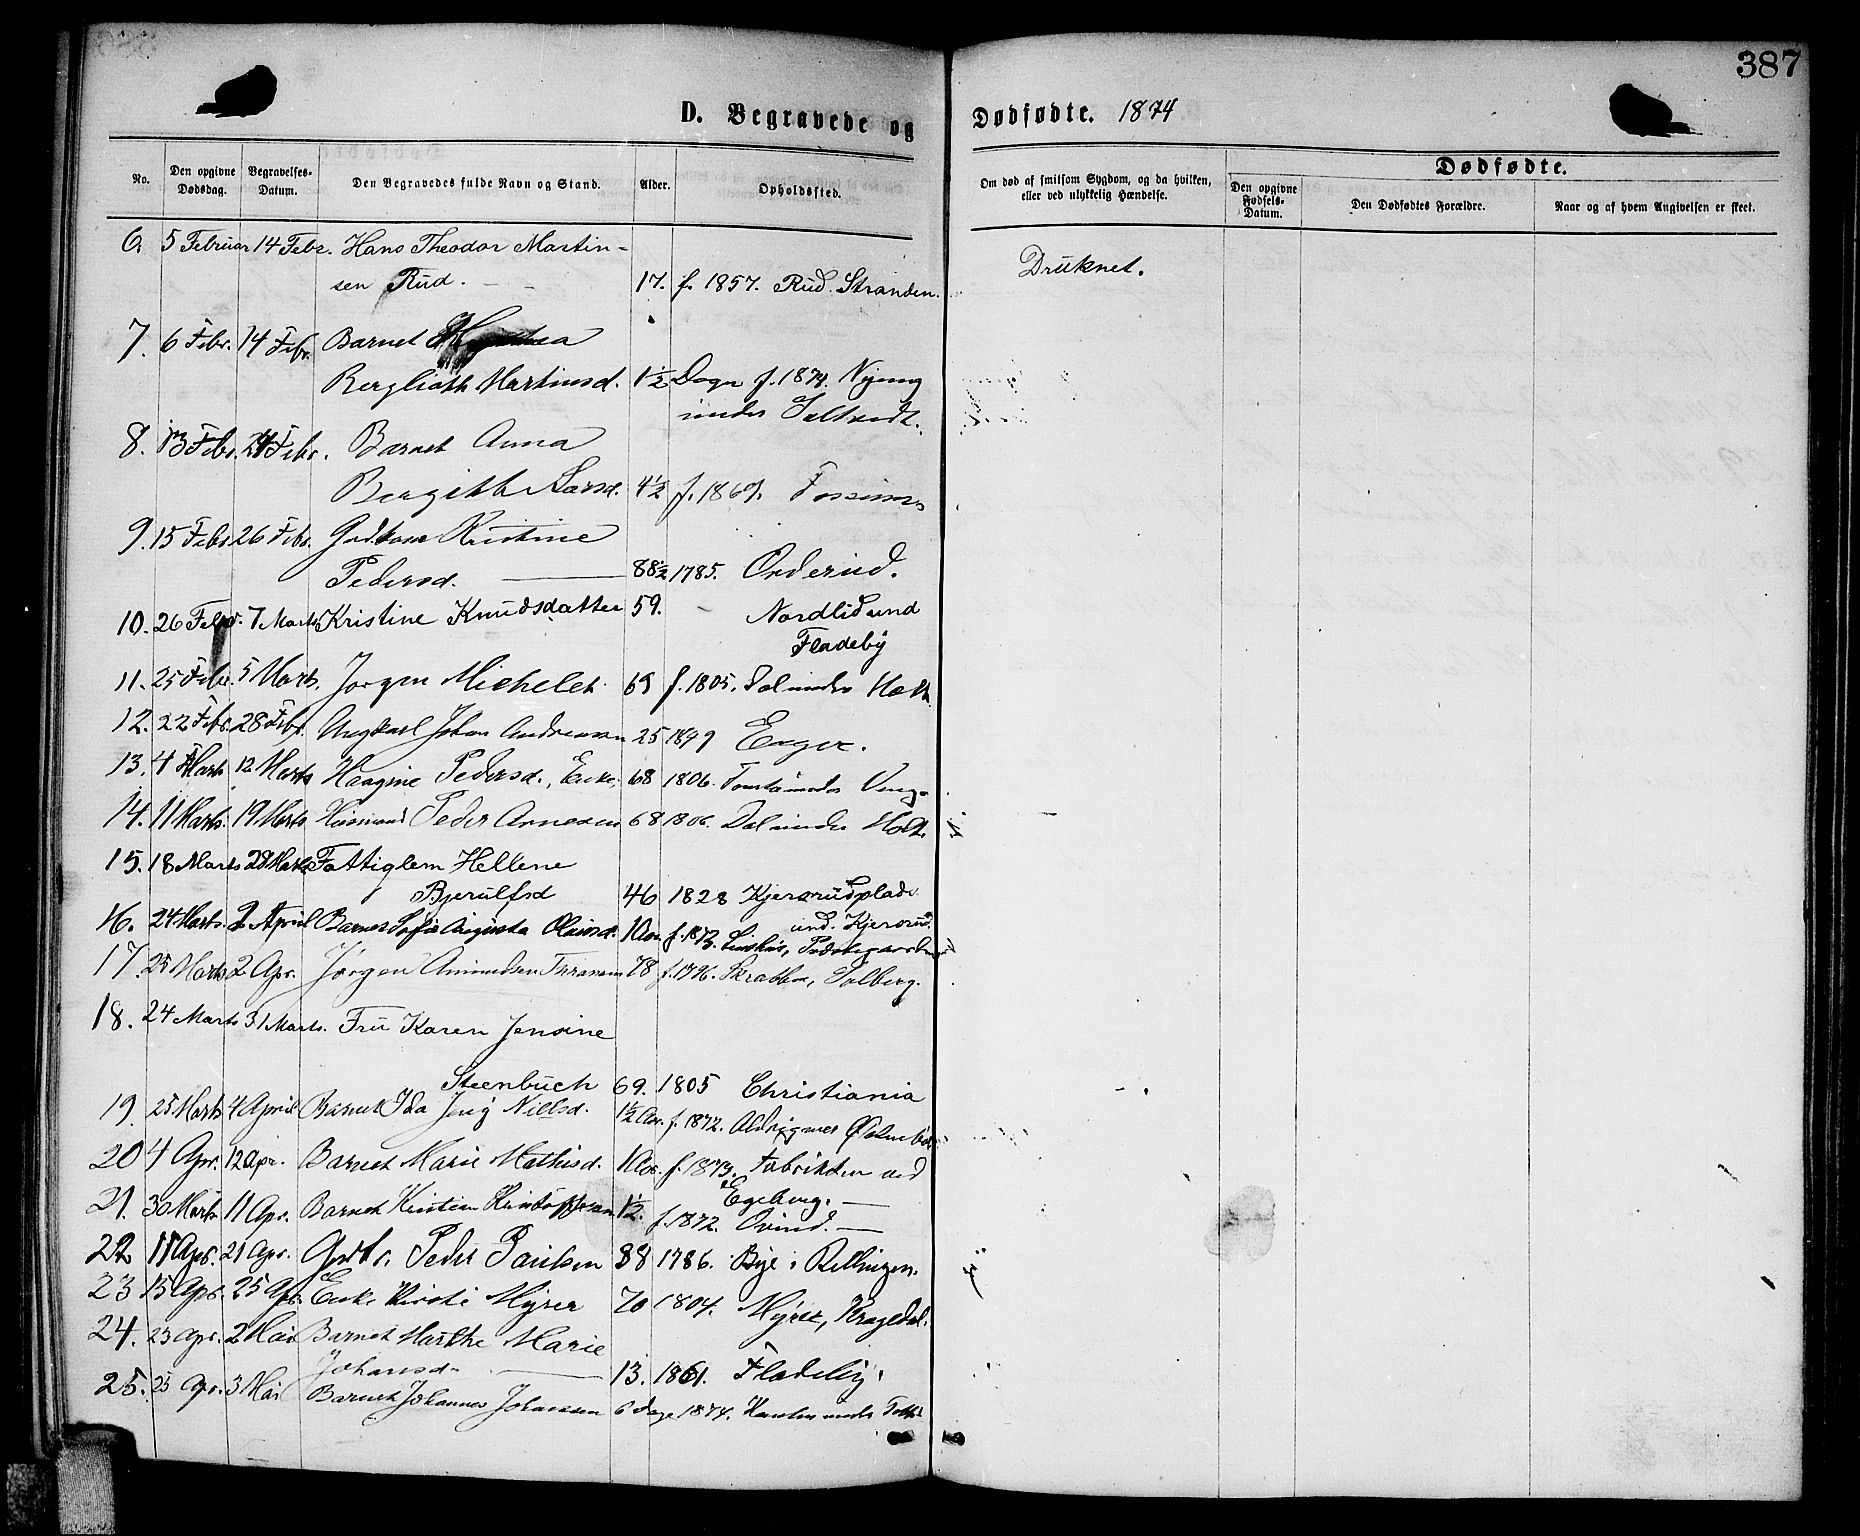 387
D. Begravede og Dødfødte. 1874
No. Den opgivne Dødsdag. Begravelses-Datum. Den Begravedes fulde Navn og Stand. Alder. Opholdssted. Om død af smitsom Sygdom, og da hvilken, eller ved ulykkelig Hændelse. Dødfødte.
Den opgivne Fødsels-Datum. Den Dødfødtes Forældre. Naar og af hvem Angivelsen er skeet.
6. 5 Februar 14 Febr. Hans Theodor Martin-
sen Rud. 17. f. 1857. Rud. Stranden. Druknet.
7. 6 Febr. 14 Febr. Barnet
Berglioth Martinsd. 1½ Dage f. 1874.
under
8. 13 Febr. 24 Febr. Barnet Anna
Bergithe Larsd. 4½ f. 1869.
9. 15 Febr. 26 Febr. Kristine
Pedersd. 88½ 1785. Orderud.
10. 26 Febr. 7 Marts Kristine Knudsdatter 59. Nordlid und
Fladeby
11. 25 Febr. 5 Marts. Jørgen Michelet 69 f. 1805. Dal under
12. 22 Febr. 28 Febr. Ungkarl Johan Andreasen 25 1849 Enger.
13. 4 Marts 12 Marts Pedersd., Enke, 68 1806.
14. 11 Marts. 19 Marts Husmand Peder Arnesen 68 1806. Dal under Holt.
15. 18 Marts 28 Marts Fattiglem Hellene
Bjerulfsd 46 1828 Kjersrudplads
und. Kjersrud.
16. 24 Marts. 2 April Barnet Sofie Augusta Olausd. 1 Aar. f. 1873.
17. 25 Marts 2 Apr. Jørgen Amundsen 78 f. 1796. Skratten, Solberg.
18. 24 Marts 31 Marts. Fru Karen Jensine
Steenbuch 69. 1805 Christiania
19. 25 Marts 4 April Barnet Ida Jenny Nillsd. 1½ Aar. f. 1872.
20 4 Apr. 12 Apr. Barnet Marie Mathisd. 1 Aar. f. 1873. Fabrikken ved
Egeberg.
21. 30 Marts 11 Apr. Barnet Kristian Kristoffersen 1½. f. 1872.
22 11 Apr. 21 Apr. Peder Paulsen 88 1786. Bye i
23 15 Apr. 25 Apr. Enke Kirsti Myrer 70 1804. Myrer, Kragedal.
24. 23 Apr. 2 Mai Barnet Marthe Marie
Johansd. 13. 1861. Fladeby.
25. 25 Apr. 3 Mai Barnet Johannes Johansen 6 Dage 1874. under